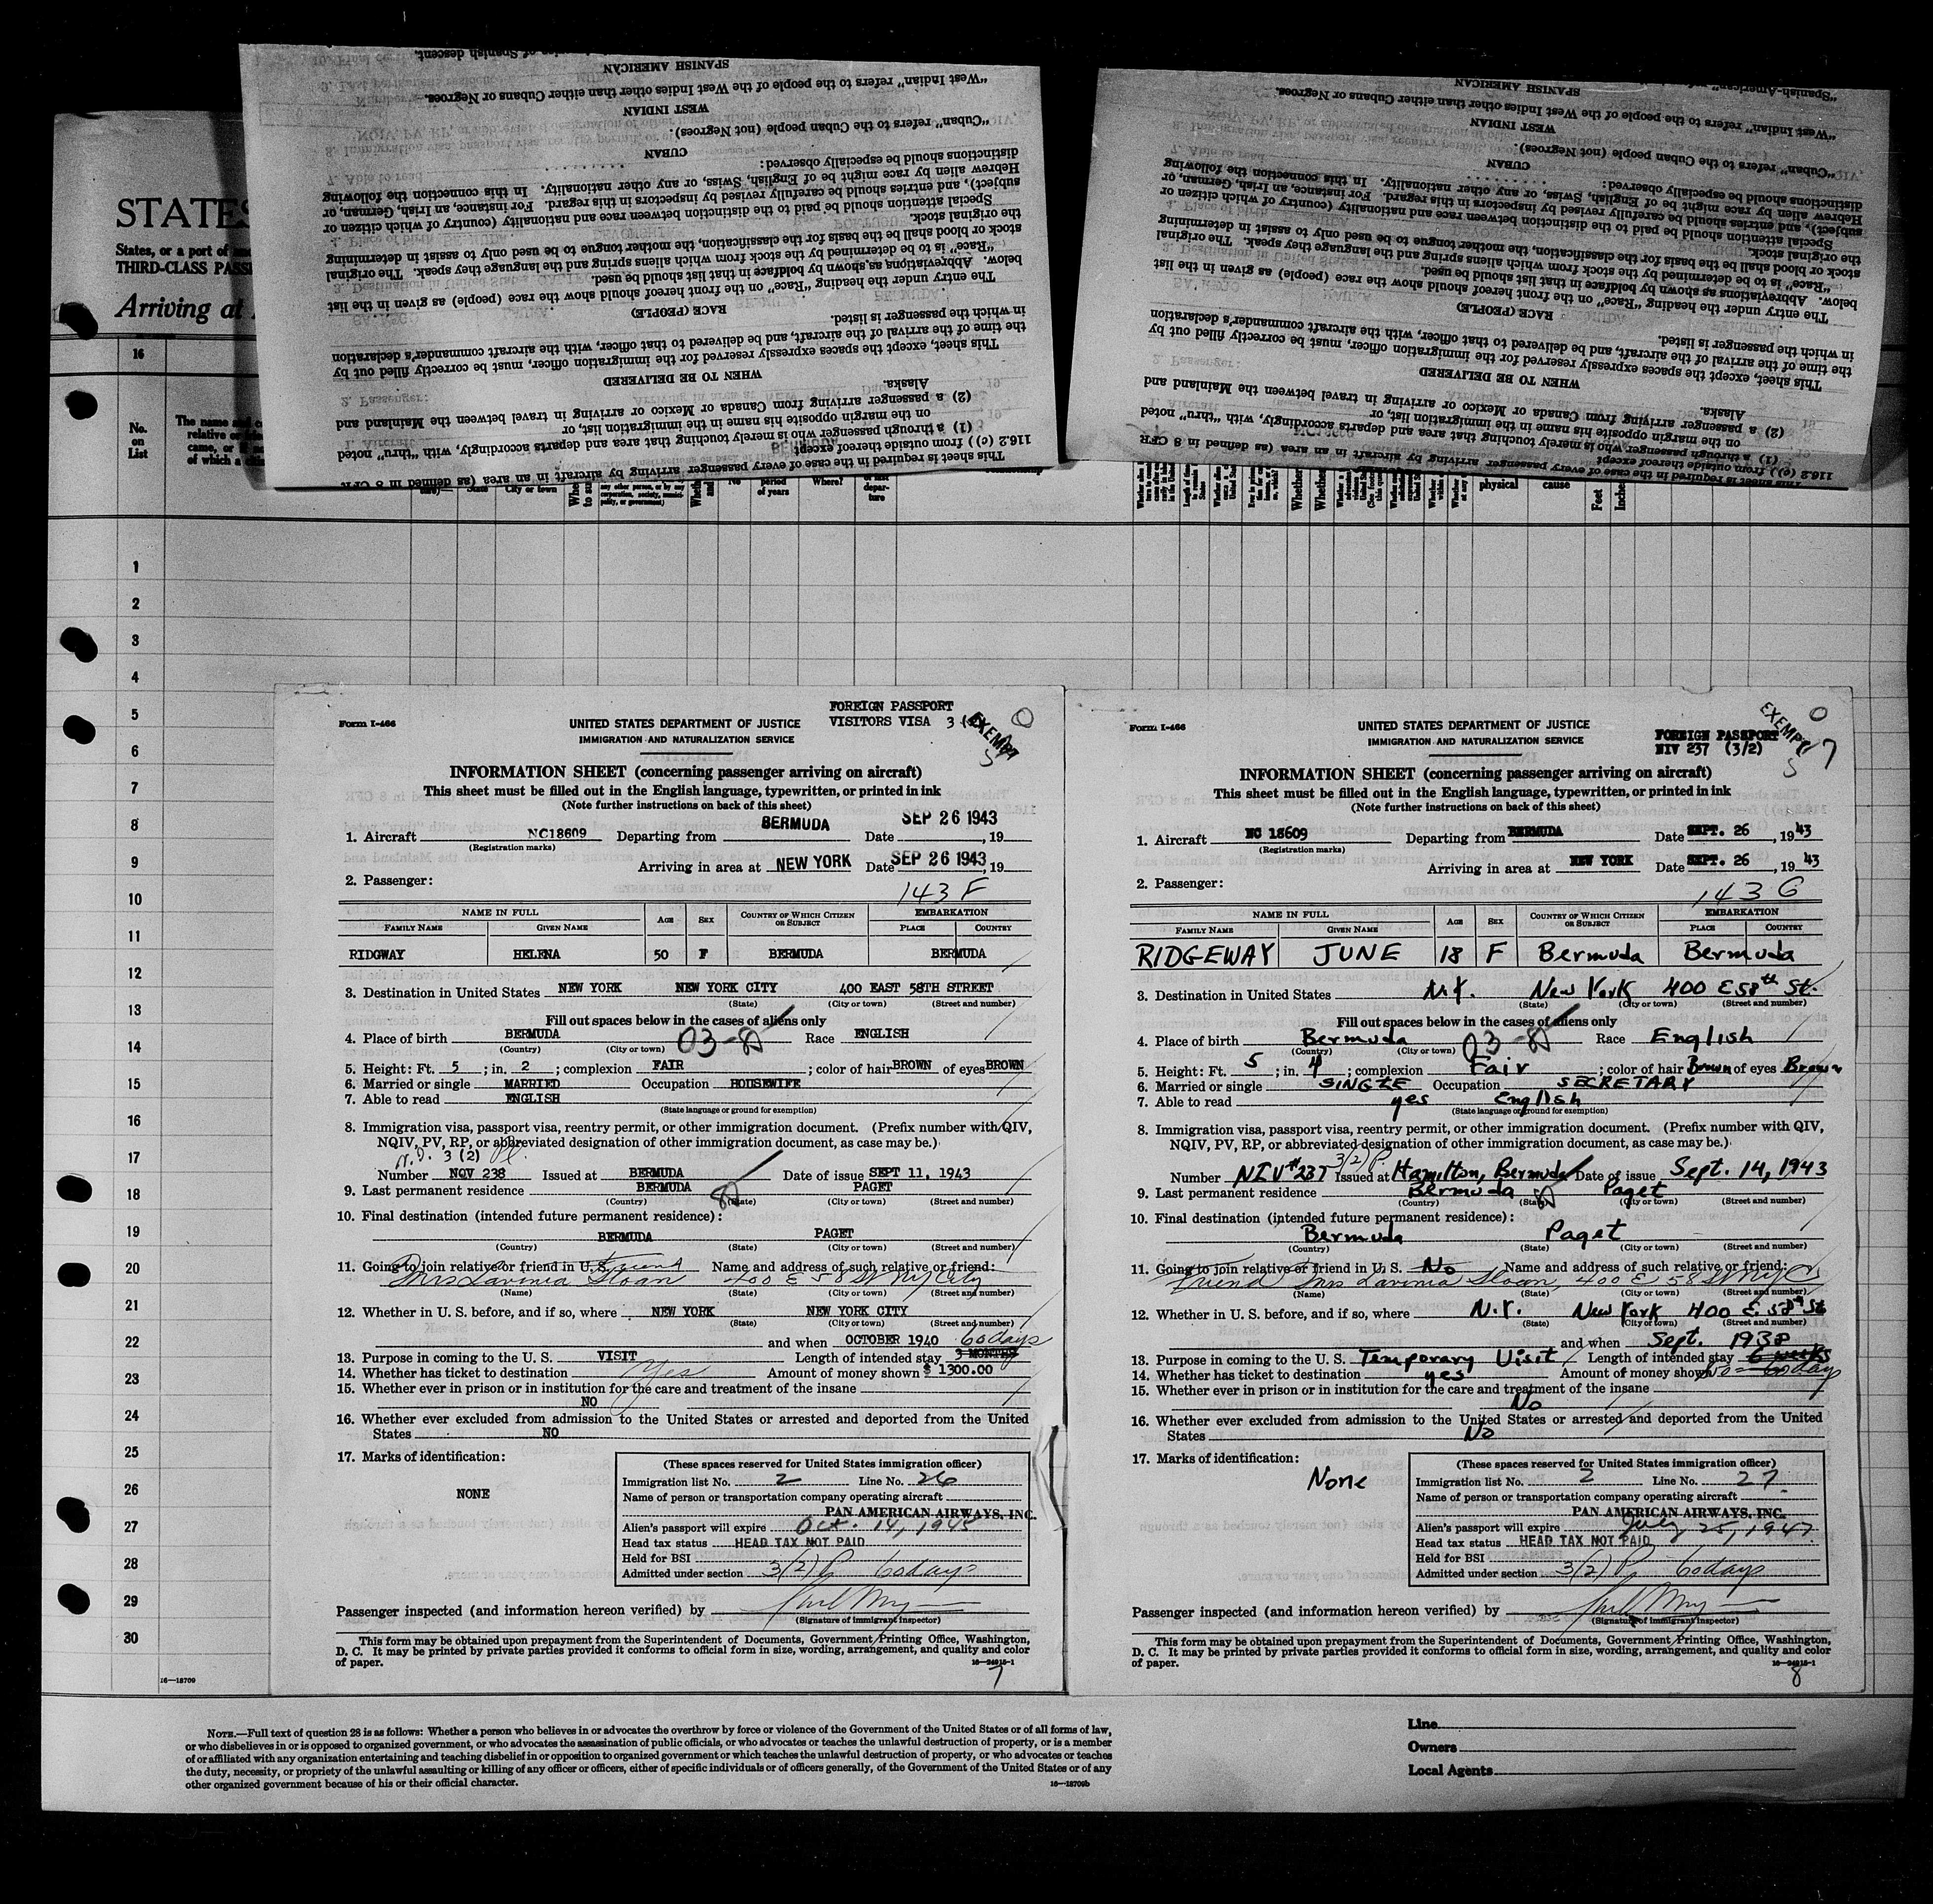 STATES
States, or a port of
THIRD-CLASS PASS
Arriving at
16
No.
on
List
The name and
relative or
came, or
of which a
SPANISH AMERICAN
"West Indian" refers to the people of the West Indies other than either Cubans or Negroes.
WEST INDIAN
"Cuban" refers to the Cuban people (not Negroes).
CUBAN
distinctions should be especially observed:
Hebrew alien by race might be of English, Swiss, or any other nationality. In this connection the following
subject), and entries should be carefully revised by inspectors in this regard. For instance, an Irish, German, or
Special attention should be paid to the distinction between race and nationality (country of which citizen or
the original stock.
stock or blood shall be the basis for the classification, the mother tongue to be used only to assist in determining
"Race" is to be determined by the stock from which aliens spring and the language they speak. The original
below. Abbreviations as shown by boldface in that list should be used.
The entry under the heading "Race" on the front hereof should show the race (people) as given in the list
RACE (PEOPLE)
in which the passenger is listed.
the time of the arrival of the aircraft, and be delivered to that officer, with the aircraft commander's declaration
This sheet, except the spaces expressly reserved for the immigration officer, must be correctly filled out by
WHEN TO BE DELIVERED
Alaska.
(2) a passenger arriving from Canada or Mexico or arriving in travel between the Mainland and
on the margin opposite his name in the immigration list, or
(1) a through passenger who is merely touching that area and departs accordingly, with "thru" noted
116.2 (c)) from outside thereof except
This sheet is required in the case of every passenger arriving by aircraft in an area (as defined in 8 CFR
SPANISH AMERICAN
"West Indian" refers to the people of the West Indies other than either Cubans or Negroes.
WEST INDIAN
"Cuban" refers to the Cuban people (not Negroes).
CUBAN
distinctions should be especially observed:
Hebrew alien by race might be of English, Swiss, or any other nationality. In this connection the following
subject), and entries should be carefully revised by inspectors in this regard. For instance, an Irish, German, or
Special attention should be paid to the distinction between race and nationality (country of which citizen or
the original stock.
stock or blood shall be the basis for the classification, the mother tongue to be used only to assist in determining
"Race" is to be determined by the stock from which aliens spring and the language they speak. The original
below. Abbreviations as shown by boldface in that list should be used.
The entry under the heading "Race" on the front hereof should show the race (people) as given in the list
RACE (PEOPLE)
in which the passenger is listed.
the time of the arrival of the aircraft, and be delivered to that officer, with the aircraft commander's declaration
This sheet, except the spaces expressly reserved for the immigration officer, must be correctly filled out by
WHEN TO BE DELIVERED
Alaska.
(2) a passenger arriving from Canada or Mexico or arriving in travel between the Mainland and
on the margin opposite his name in the immigration list, or
(1) a through passenger who is merely touching that area and departs accordingly, with "thru" noted
116.2 (c)) from outside thereof except
This sheet is required in the case of every passenger arriving by aircraft in an area (as defined in 8 CFR
State City or town No period of years Where? physical cause Feet Inches
1
2
3
4
5
6
7
8
9
10
11
12
13
14
15
16
17
18
19
20
21
22
23
24
25
26
27
28
29
30
16—18709
FOREIGN PASSPORT
VISITORS VISA 3 (2)
EXEMPT
Form I-466
UNITED STATES DEPARTMENT OF JUSTICE
IMMIGRATION AND NATURALIZATION SERVICE
INFORMATION SHEET (concerning passenger arriving on aircraft)
This sheet must be filled out in the English language, typewritten, or printed in ink
(Note further instructions on back of this sheet)
1. Aircraft NC18609 Departing from BERMUDA Date SEP 26 1943, 19
(Registration marks)
Arriving in area at NEW YORK Date SEP 26 1943, 19
2. Passenger: 143 F
NAME IN FULL AGE SEX COUNTRY OF WHICH CITIZEN OR SUBJECT EMBARKATION
FAMILY NAME GIVEN NAME PLACE COUNTRY
RIDGWAY HELENA 50 F BERMUDA BERMUDA
3. Destination in United States NEW YORK NEW YORK CITY 400 EAST 58TH STREET
(State) (City or town) (Street and number)
Fill out spaces below in the cases of aliens only
4. Place of birth BERMUDA 03-8 Race ENGLISH
(Country) (City or town)
5. Height: Ft. 5; in. 2; complexion FAIR; color of hair BROWN of eyes BROWN
6. Married or single MARRIED Occupation HOUSEWIFE
7. Able to read ENGLISH
(State language or ground for exemption)
8. Immigration visa, passport visa, reentry permit, or other immigration document. (Prefix number with QIV,
NQIV, PV, RP, or abbreviated designation of other immigration document, as case may be.)
3 (2)
Number NOV 238 Issued at BERMUDA Date of issue SEPT 11, 1943
9. Last permanent residence BERMUDA PAGET
(Country) (State) (City or town) (Street and number)
10. Final destination (intended future permanent residence):
BERMUDA PAGET
(Country) (State) (City or town) (Street and number)
11. Going to join relative or friend in U. S. friend Name and address of such relative or friend:
Mrs Lavinia Sloan 400 E 58 St Ny City
(Name) (State) (City or town) (Street and number)
12. Whether in U. S. before, and if so, where NEW YORK NEW YORK CITY
(State) (City or town) (Street and number)
and when OCTOBER 1940 60 days
13. Purpose in coming to the U. S. VISIT Length of intended stay 3 MONTHS
14. Whether has ticket to destination Yes Amount of money shown $ 1300.00
15. Whether ever in prison or in institution for the care and treatment of the insane
NO
16. Whether ever excluded from admission to the United States or arrested and deported from the United
States NO
17. Marks of identification:
NONE
(These spaces reserved for United States immigration officer)
Immigration list No. 2 Line No. 26
Name of person or transportation company operating aircraft
PAN AMERICAN AIRWAYS, INC.
Alien's passport will expire Oct. 14, 1945
Head tax status HEAD TAX NOT PAID
Held for BSI
Admitted under section 3(2) P 60 days
Passenger inspected (and information hereon verified) by
(Signature of immigrant inspector)
This form may be obtained upon prepayment from the Superintendent of Documents, Government Printing Office, Washington,
D. C. It may be printed by private parties provided it conforms to official form in size, wording, arrangement, and quality and color
of paper.
16—24915-1
7
EXEMPT
FOREIGN PASSPORT
NIV 237 (3/2)
Form I-466
UNITED STATES DEPARTMENT OF JUSTICE
IMMIGRATION AND NATURALIZATION SERVICE
INFORMATION SHEET (concerning passenger arriving on aircraft)
This sheet must be filled out in the English language, typewritten, or printed in ink
(Note further instructions on back of this sheet)
1. Aircraft NC 18609 Departing from BERMUDA Date SEPT. 26, 1943
(Registration marks)
Arriving in area at NEW YORK Date SEPT. 26, 1943
2. Passenger: 143 G
NAME IN FULL AGE SEX COUNTRY OF WHICH CITIZEN OR SUBJECT EMBARKATION
FAMILY NAME GIVEN NAME PLACE COUNTRY
RIDGEWAY JUNE 18 F Bermuda Bermuda
3. Destination in United States N.Y. New York 400 E 58th St.
(State) (City or town) (Street and number)
Fill out spaces below in the cases of aliens only
4. Place of birth Bermuda 03-8 Race English
(Country) (City or town)
5. Height: Ft. 5; in. 4; complexion Fair; color of hair Brown of eyes Brown
6. Married or single SINGLE Occupation SECRETARY
7. Able to read yes English
(State language or ground for exemption)
8. Immigration visa, passport visa, reentry permit, or other immigration document. (Prefix number with QIV,
NQIV, PV, RP, or abbreviated designation of other immigration document, as case may be.)
3(2) P.
Number NIV #237 Issued at Hamilton, Bermuda Date of issue Sept. 14, 1943
9. Last permanent residence Bermuda Paget
(Country) (State) (City or town) (Street and number)
10. Final destination (intended future permanent residence):
Bermuda Paget
(Country) (State) (City or town) (Street and number)
11. Going to join relative or friend in U. S. No Name and address of such relative or friend:
friend Mrs Lavinia Sloan, 400 E 58 St NYC
(Name) (State) (City or town) (Street and number)
12. Whether in U. S. before, and if so, where N.Y. New York 400 E. 58th St
(State) (City or town) (Street and number)
and when Sept. 1938
13. Purpose in coming to the U. S. Temporary Visit Length of intended stay 6 weeks
14. Whether has ticket to destination yes Amount of money shown 60 days
15. Whether ever in prison or in institution for the care and treatment of the insane
No
16. Whether ever excluded from admission to the United States or arrested and deported from the United
States No
17. Marks of identification:
None
(These spaces reserved for United States immigration officer)
Immigration list No. 2 Line No. 27.
Name of person or transportation company operating aircraft
PAN AMERICAN AIRWAYS, INC.
Alien's passport will expire July 25, 1947.
Head tax status HEAD TAX NOT PAID
Held for BSI
Admitted under section 3(2) P 60 days
Passenger inspected (and information hereon verified) by
(Signature of immigrant inspector)
This form may be obtained upon prepayment from the Superintendent of Documents, Government Printing Office, Washington,
D. C. It may be printed by private parties provided it conforms to official form in size, wording, arrangement, and quality and color
of paper.
16—24915-1
8
NOTE.—Full text of question 28 is as follows: Whether a person who believes in or advocates the overthrow by force or violence of the Government of the United States or of all forms of law,
or who disbelieves in or is opposed to organized government, or who advocates the assassination of public officials, or who advocates or teaches the unlawful destruction of property, or is a member
of or affiliated with any organization entertaining and teaching disbelief in or opposition to organized government or which teaches the unlawful destruction of property, or who advocates or teaches
the duty, necessity, or propriety of the unlawful assaulting or killing of any officer or officers, either of specific individuals or of officers generally, of the Government of the United States or of any
other organized government because of his or their official character.
16—18709b
Line
Owners
Local Agents